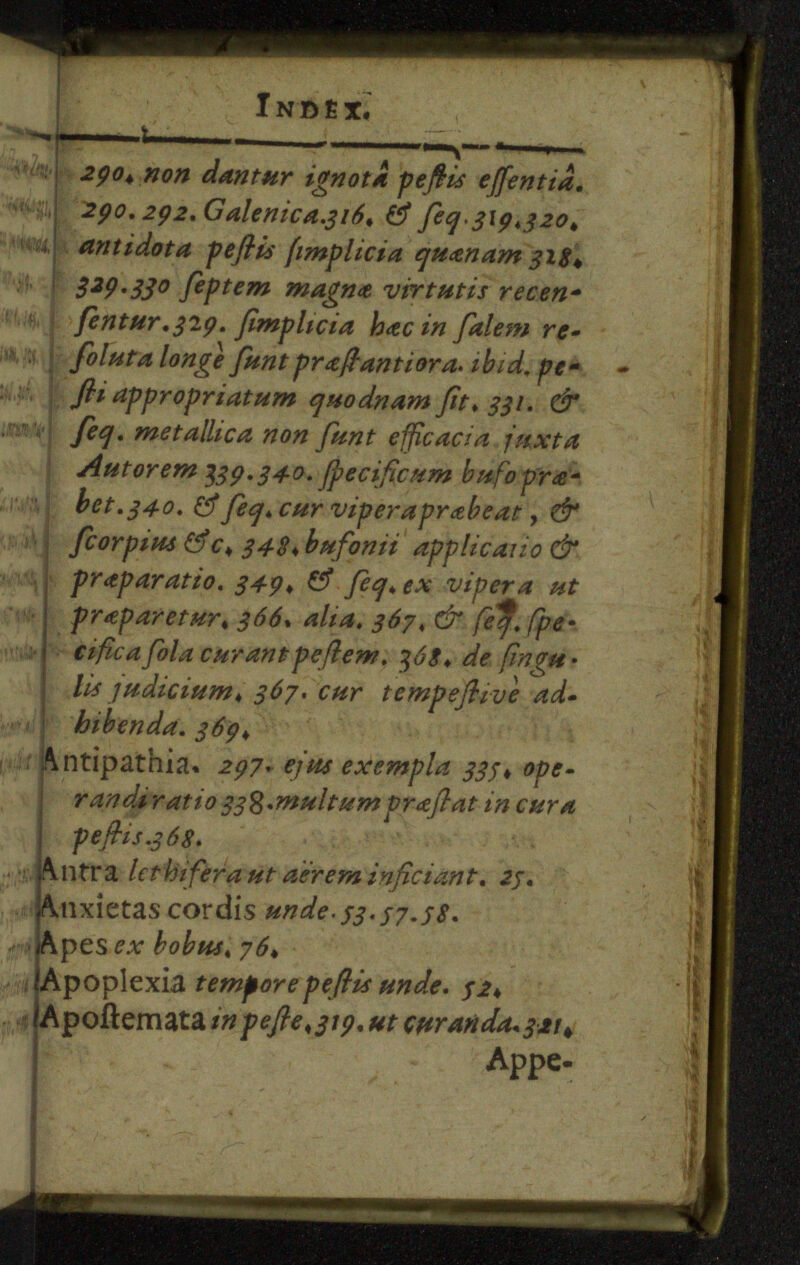 INDEX.
290. non dantur ignotâ peſtis eſſentiâ.
290. 292. Galenica. 316. & ſeq. 319. 320.
antidota peſtis ſimplicia quænam 318.
329. 330 ſeptem magnæ virtutis recen-
ſentur. 329. ſimplicia hæc in ſalem re-
ſoluta longè ſunt præſtantiora. ibid. pe-
ſti appropriatum quodnam ſit. 331. &
ſeq. metallica non ſunt efficacia juxta
Autorem 339. 340. ſpecificum bufo præ-
bet. 340. & ſeq. cur vipera præbeat, &
ſcorpius &c. 348. bufonii applicatio &
præparatio. 349. & ſeq. ex vipera ut
præparetur. 366. alia. 367. & ſeq. ſpe-
cifica ſola curant peſtem. 368. de ſingu-
lis judicium. 367. cur tempeſtivè ad-
hibenda. 369.
Antipathia. 297. ejus exempla 335. ope-
randi ratio 338. multum præſtat in cura
peſtis. 368.
Antra lethifera ut aërem inficiant. 25.
Anxietas cordis unde. 53. 57. 58.
Apes ex bobus. 76.
Apoplexia tempore peſtis unde. 52.
Apoſtemata in peſte. 319. ut curanda. 321.
Appe-